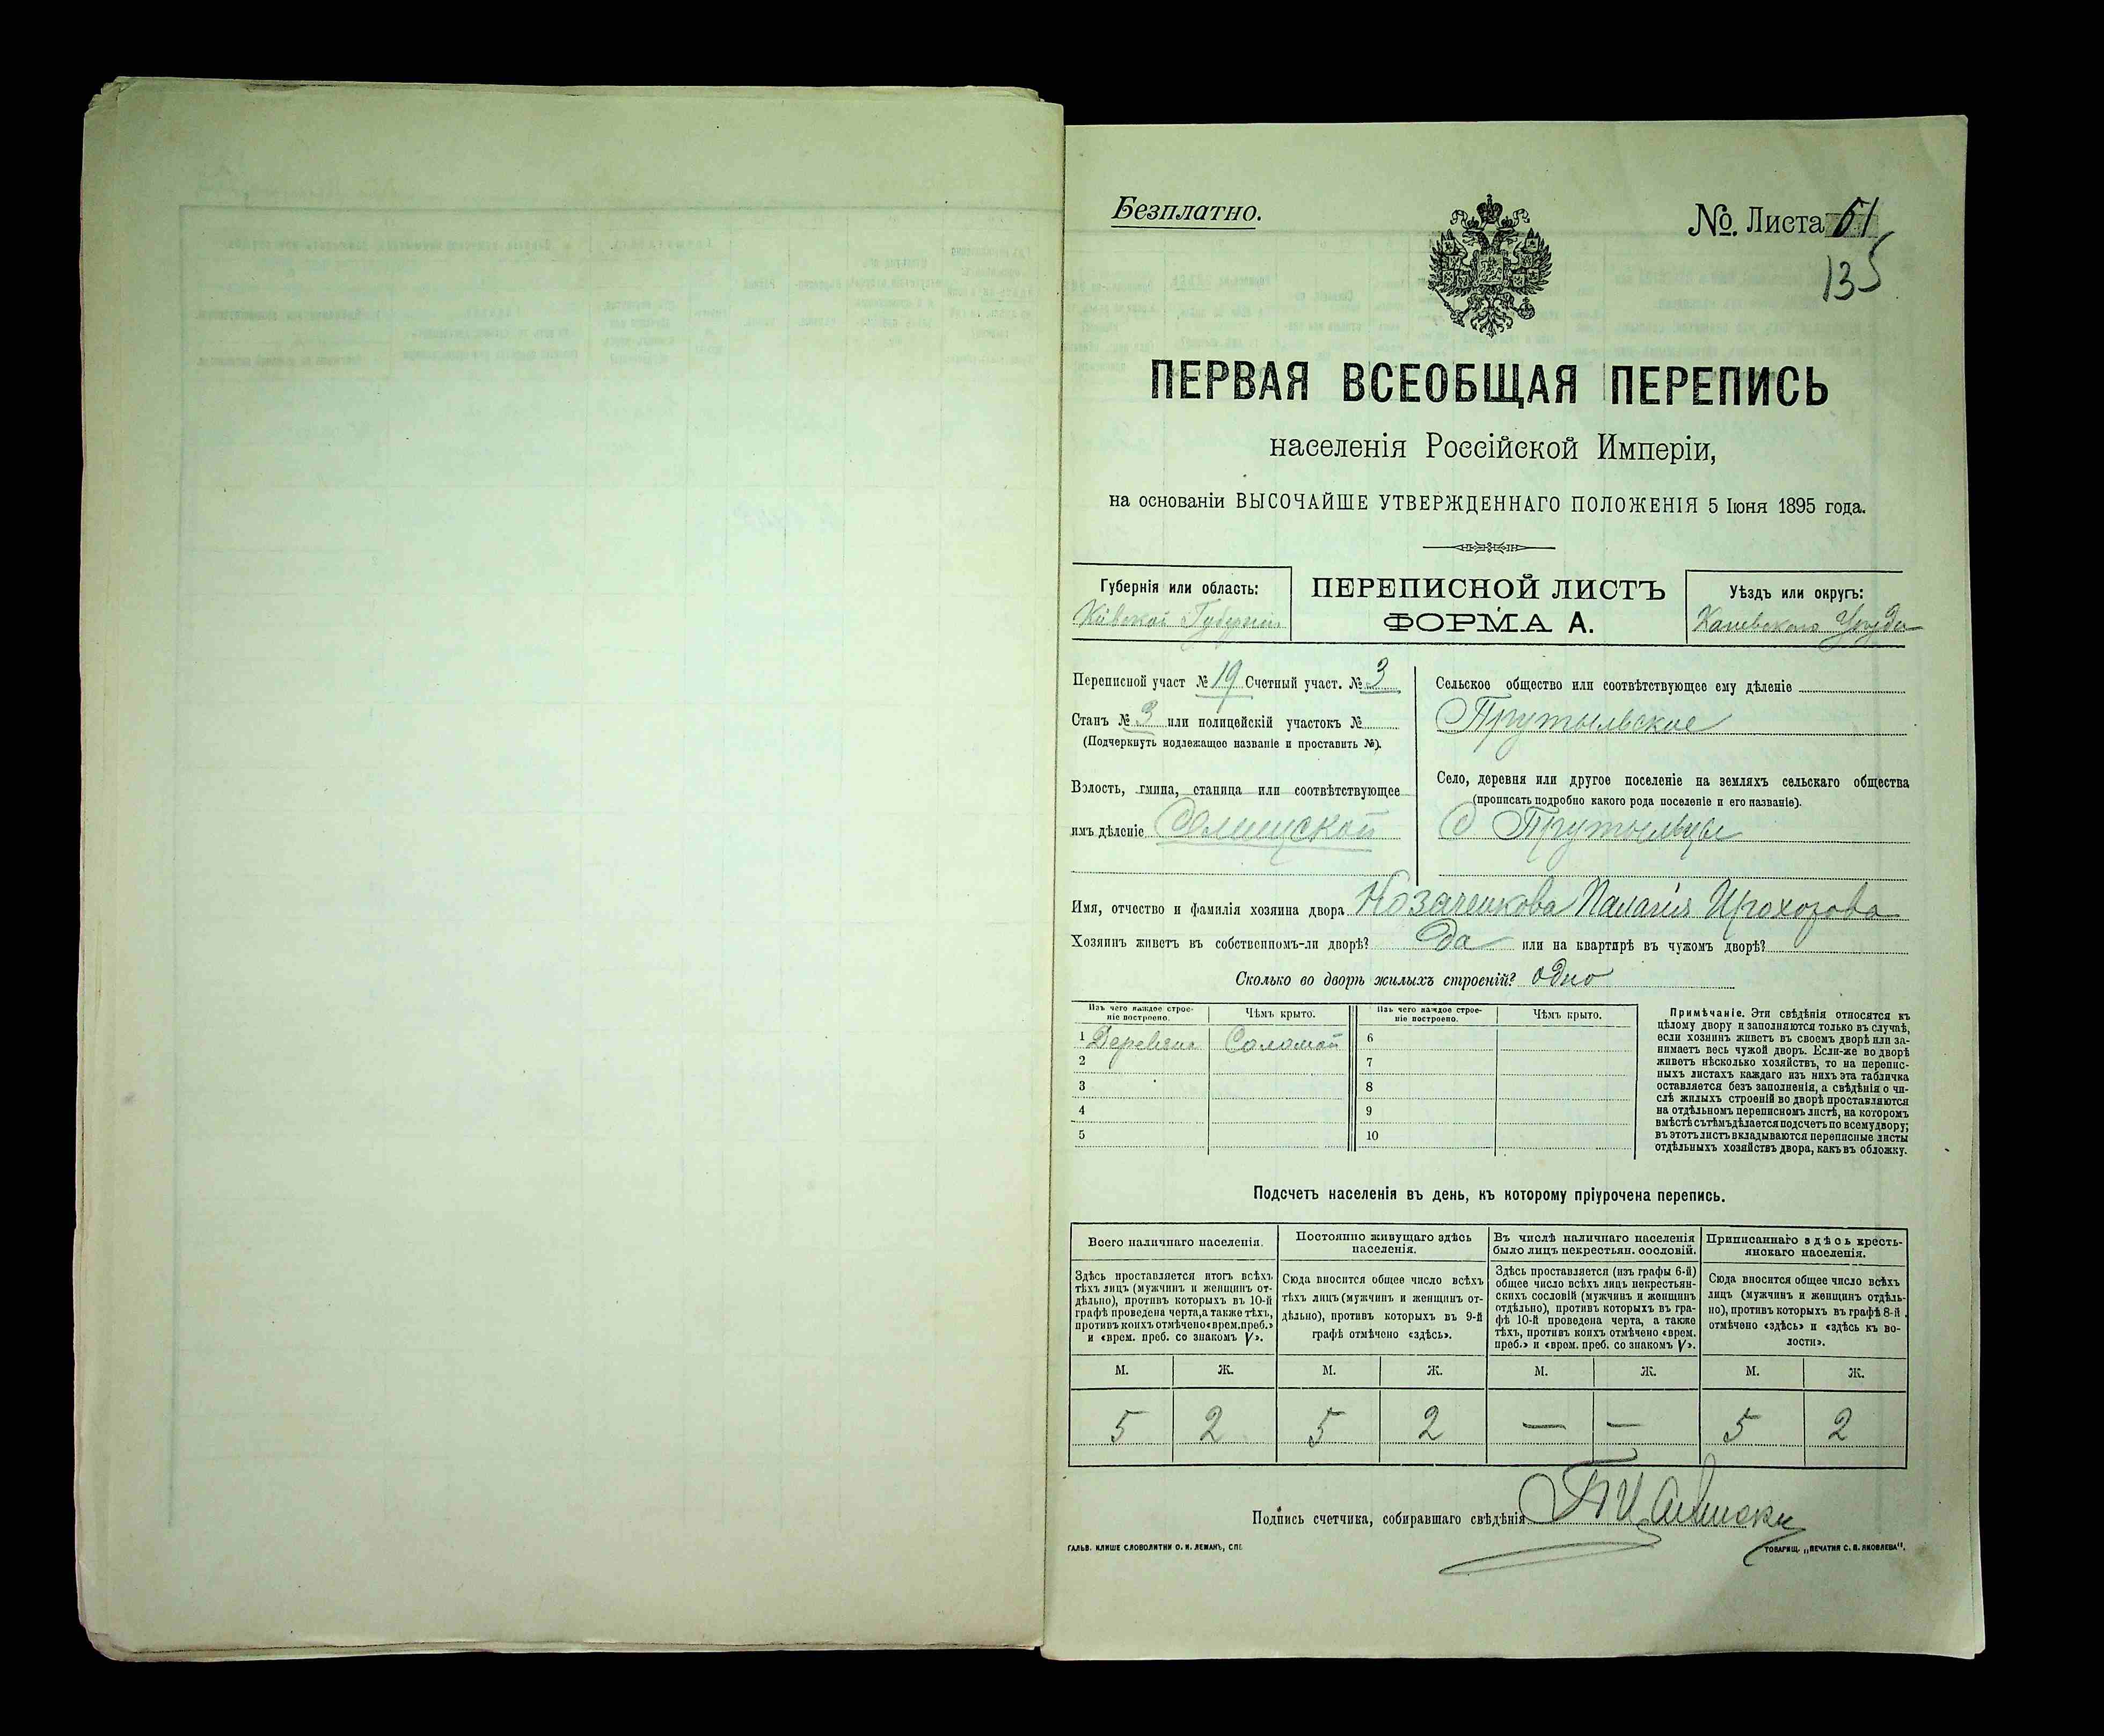 Безплатно.
№. Листа 51
135
ПЕРВАЯ ВСЕОБЩАЯ ПЕРЕПИСЬ
населенія Россійской Имперіи,
на основаніи ВЫСОЧАЙШЕ УТВЕРЖДЕННАГО ПОЛОЖЕНІЯ 5 Іюня 1895 года.
Губернія или область:
Кіевской Губерніи
ПЕРЕПИСНОЙ ЛИСТЪ
ФОРМА А.
Уѣздъ или округъ:
Каневского Уѣзда
Переписной участ № 19 Счетный участ. № 3
Станъ № 3 или полицейскій участокъ №
(Подчеркнуть подлежащее названіе и проставить №).
Волость, гмина, станица или соотвѣтствующее
имъ дѣленіе
Сельское общество или соотвѣтствующее ему дѣленіе
Прутыльское
Село, деревня или другое поселеніе на земляхъ сельскаго общества
(прописать подробно какого рода поселеніе и его названіе).
д Прутыльцы
Имя, отчество и фамилія хозяина двора Козаченкова Палагія Прохорова
Хозяинъ живетъ въ собственномъ-ли дворѣ? Да или на квартирѣ въ чужомъ дворѣ?
Сколько во дворѣ жилыхъ строеній? одно
Изъ чего каждое строе-
ніе построено.
Чѣмъ крыто.
Изъ чего каждое строе-
ніе построено.
Чѣмъ крыто.
1 Деревяно Соломой 6
2 7
3 8
4 9
5 10
Примѣчаніе. Эти свѣдѣнія относятся къ
цѣлому двору и заполняются только въ случаѣ,
если хозяинъ живетъ въ своемъ дворѣ или за-
нимаетъ весь чужой дворъ. Если-же во дворѣ
живетъ нѣсколько хозяйствъ, то на перепис-
ныхъ листахъ каждаго изъ нихъ эта табличка
оставляется безъ заполненія, а свѣдѣнія о чи-
слѣ жилыхъ строеній во дворѣ проставляются
на отдѣльномъ переписномъ листѣ, на которомъ
вмѣстѣ съ тѣмъ дѣлается подсчетъ по всему двору;
въ этотъ листъ вкладываются переписные листы
отдѣльныхъ хозяйствъ двора, какъ въ обложку.
Подсчетъ населенія въ день, къ которому пріурочена перепись.
Всего наличнаго населенія.
Здѣсь проставляется итогъ всѣхъ
тѣхъ лицъ (мужчинъ и женщинъ от-
дѣльно), противъ которыхъ въ 10-й
графѣ проведена черта, а также тѣхъ,
противъ коихъ отмѣчено «врем. преб.»
и «врем. преб. со знакомъ V».
Постоянно живущаго здѣсь
населенія.
Сюда вносится общее число всѣхъ
тѣхъ лицъ (мужчинъ и женщинъ от-
дѣльно), противъ которыхъ въ 9-й
графѣ отмѣчено «здѣсь».
Въ числѣ наличнаго населенія
было лицъ некрестьян. сословій.
Здѣсь проставляется (изъ графы 6-й)
общее число всѣхъ лицъ некрестьян-
скихъ сословій (мужчинъ и женщинъ
отдѣльно), противъ которыхъ въ гра-
фѣ 10-й проведена черта, а также
тѣхъ, противъ коихъ отмѣчено «врем.
преб.» и «врем. преб. со знакомъ V».
Приписаннаго здѣсь кресть-
янскаго населенія.
Сюда вносится общее число всѣхъ
лицъ (мужчинъ и женщинъ отдѣль-
но), противъ которыхъ въ графѣ 8-й
отмѣчено «здѣсь» и «здѣсь къ во-
лости».
М. Ж. М. Ж. М. Ж. М. Ж.
5 2 5 2 — — 5 2
Подпись счетчика, собиравшаго свѣдѣнія
ГАЛЬВ. КЛИШЕ СЛОВОЛИТНИ О. И. ЛЕМАНЪ, СПБ.
ТОВАРИЩ. „ПЕЧАТНЯ С. П. ЯКОВЛЕВА".